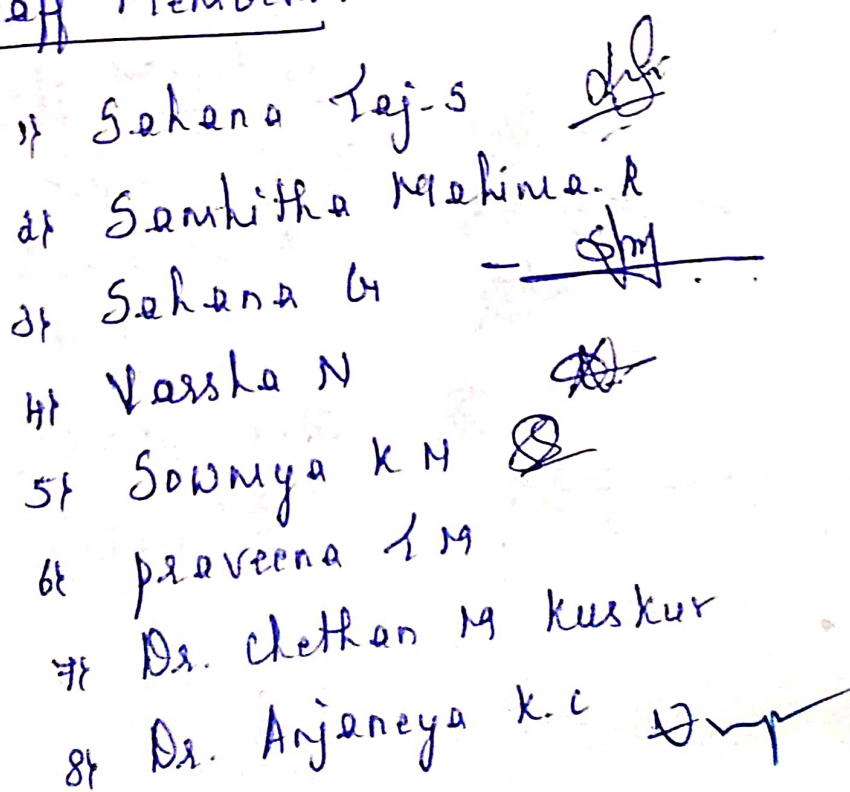 aff Member
1) Sahana Taj-S
2) Samhitha Mahima. R
3) Sahana G
4) Varsha N
5) Sowmya K M
6) praveena T M
7) Dr. Chethan M Kuskur
8) Dr. Anjaneya K.C